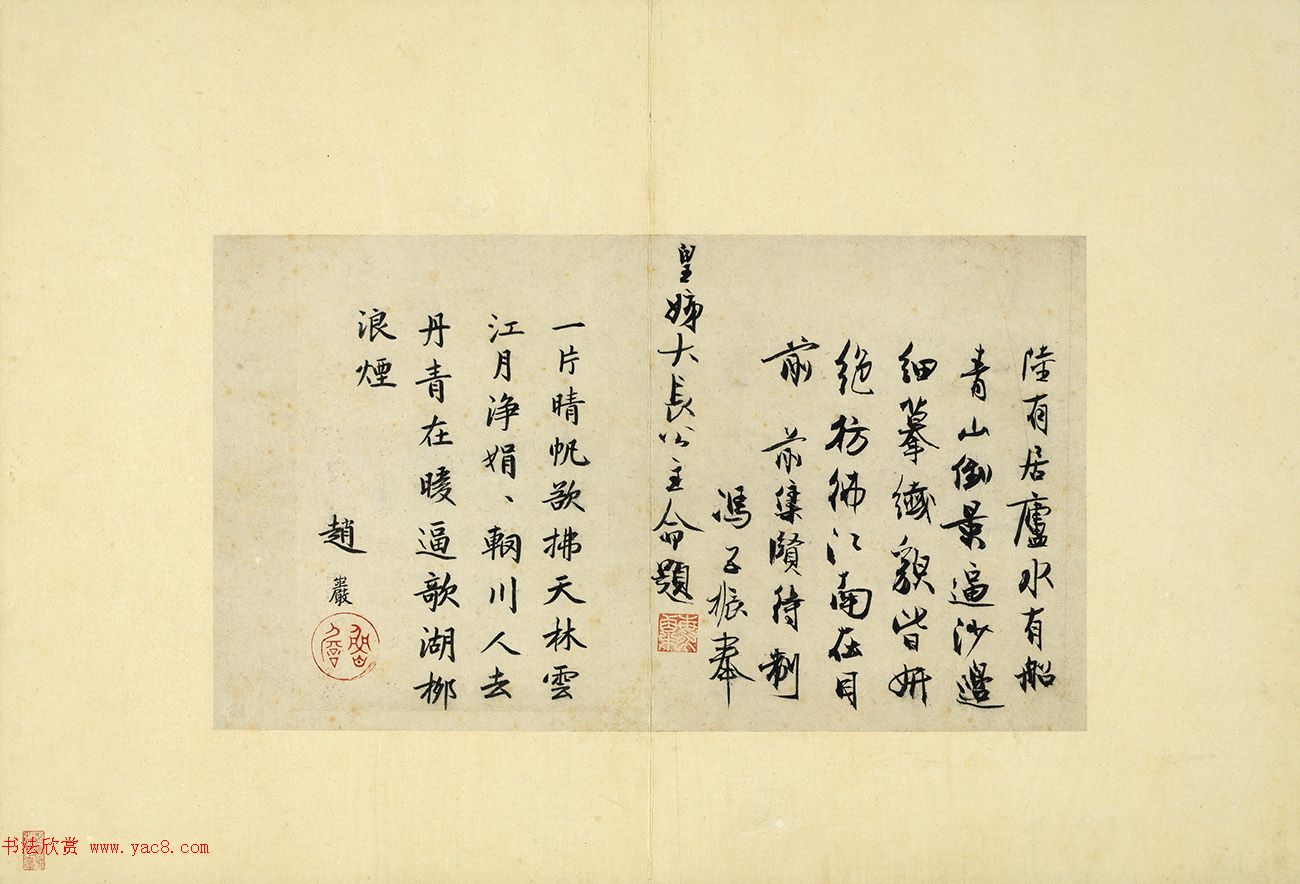 陸有居廬水有船
青山倒景逼沙邊
細摹纖貌皆妍
絶彷彿江南在目
前　前集賢待制
馮子振奉
皇姊大長公主命題
一片晴帆欲拂天林雲
江月淨娟、輞川人去
丹青在暖逼歌湖柳
浪煙
趙
巖
书法欣赏 www.yac8.com